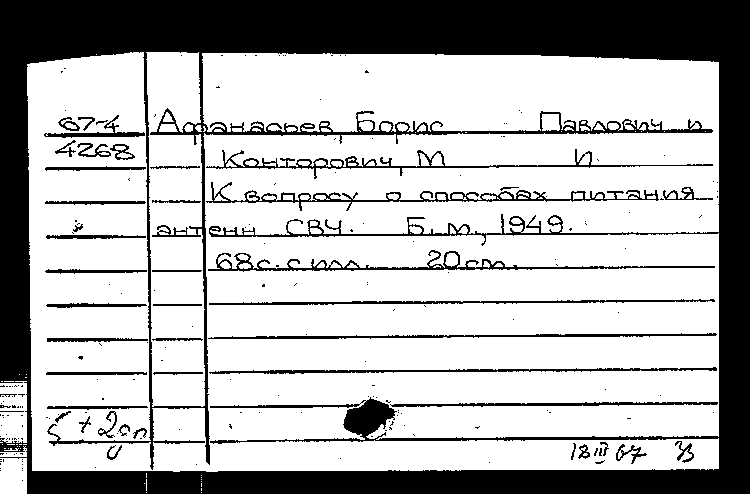 67-4 Афанасьев, Борис Павлович и
4268 Конторович, М И
К вопросу о способах питания
антенн СВЧ. Б.м., 1949.
68с. с илл. 20см.
18 III 67